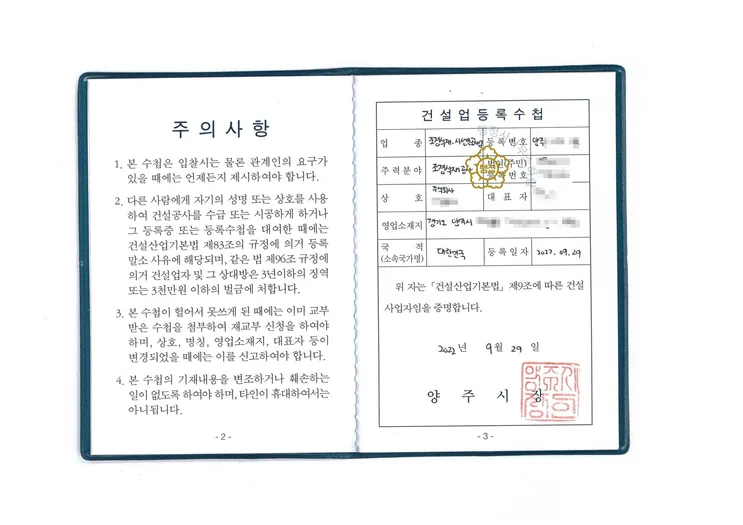 주의사항
1. 본 수첩은 입찰시는 물론 관계인의 요구가
있을 때에는 언제든지 제시하여야 합니다.
2. 다른 사람에게 자기의 성명 또는 상호를 사용
하여 건설공사를 수급 또는 시공하게 하거나
그 등록증 또는 등록수첩을 대여한 때에는
건설산업기본법 제83조의 규정에 의거 등록
말소 사유에 해당되며, 같은 법 제96조 규정에
의거 건설업자 및 그 상대방은 3년이하의 징역
또는 3천만원 이하의 벌금에 처합니다.
3. 본 수첩이 헐어서 못쓰게 된 때에는 이미 교부
받은 수첩을 첨부하여 재교부 신청을 하여야
하며, 상호, 명칭, 영업소재지, 대표자 등이
변경되었을 때에는 이를 신고하여야 합니다.
4. 본 수첩의 기재내용을 변조하거나 훼손하는
일이 없도록 하여야 하며, 타인이 휴대하여서는
아니됩니다.
- 2 -
건설업등록수첩
업 종 조경식재·시설물 등록번호 양주
주력분야 조경식재공사 법인(주민) 등록번호
상 호 주식회사 대표자
영업소재지 경기도 양주시
국 적 (소속국가명) 대한민국 등록일자 2022. 09. 29
위 자는 「건설산업기본법」 제9조에 따른 건설
사업자임을 증명합니다.
2022년 9월 29일
양주시장
- 3 -